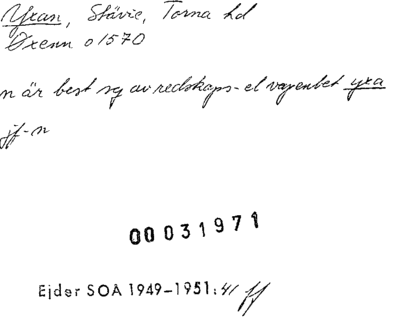 Yxan, Stävie, Torna hd
Öxenn o 1570
n är best sg av redskaps- el vapenbet yxa
jf-n
00031971
Ejder SOA 1949-1951:41 ff